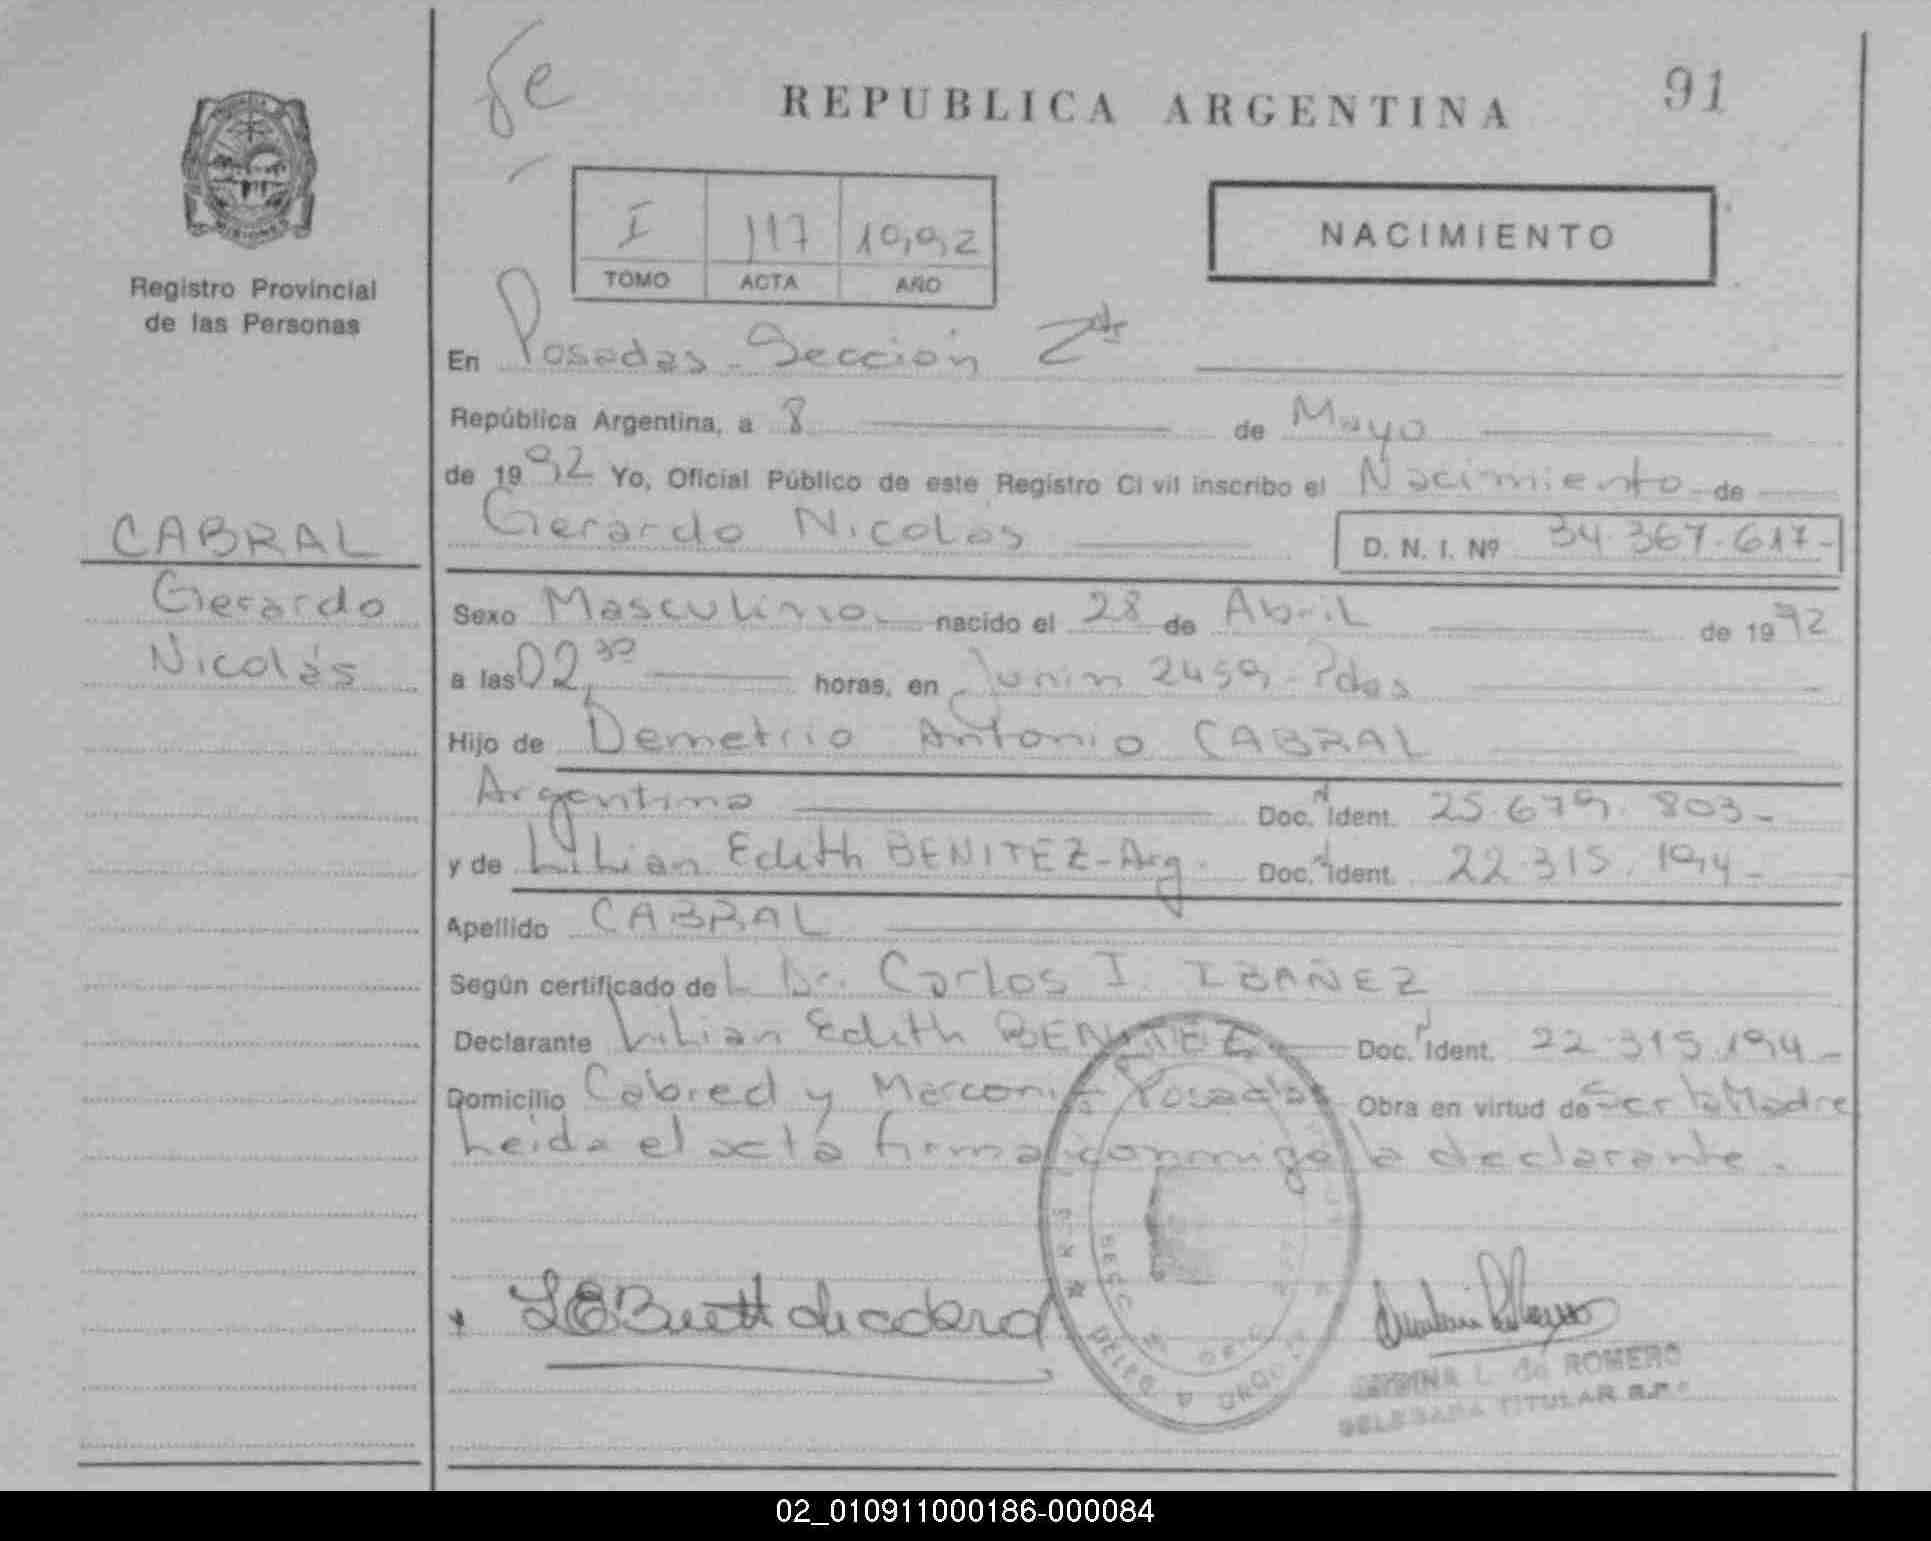 91
REPUBLICA ARGENTINA
NACIMIENTO
I 117 1992
TOMO ACTA AÑO
Registro Provincial
de las Personas
En Posadas - Sección 2da
República Argentina, a 8 de Mayo
de 1992 Yo, Oficial Público de este Registro Civil inscribo el Nacimiento de
Gerardo Nicolás D. N. I. Nº 34.367.617-
CABRAL
Gerardo
Nicolás
Sexo Masculino nacido el 28 de Abril de 1992
a las 02,30 horas, en Junín 2459 - Pdas
Hijo de Demetrio Antonio CABRAL
Argentino Doc. Ident. 25.679.803-
y de Lilian Edith BENITEZ - Arg. Doc. Ident. 22.315.194-
Apellido CABRAL
Según certificado del Dr. Carlos I. IBAÑEZ
Declarante Lilian Edith BENITEZ Doc. Ident. 22.315.194-
Domicilio Cabred y Marconi - Posadas Obra en virtud de ser la Madre
Leida el acta firma conmigo la declarante.
L. de ROMERO
DELEGADA TITULAR R.P.
02_010911000186-000084